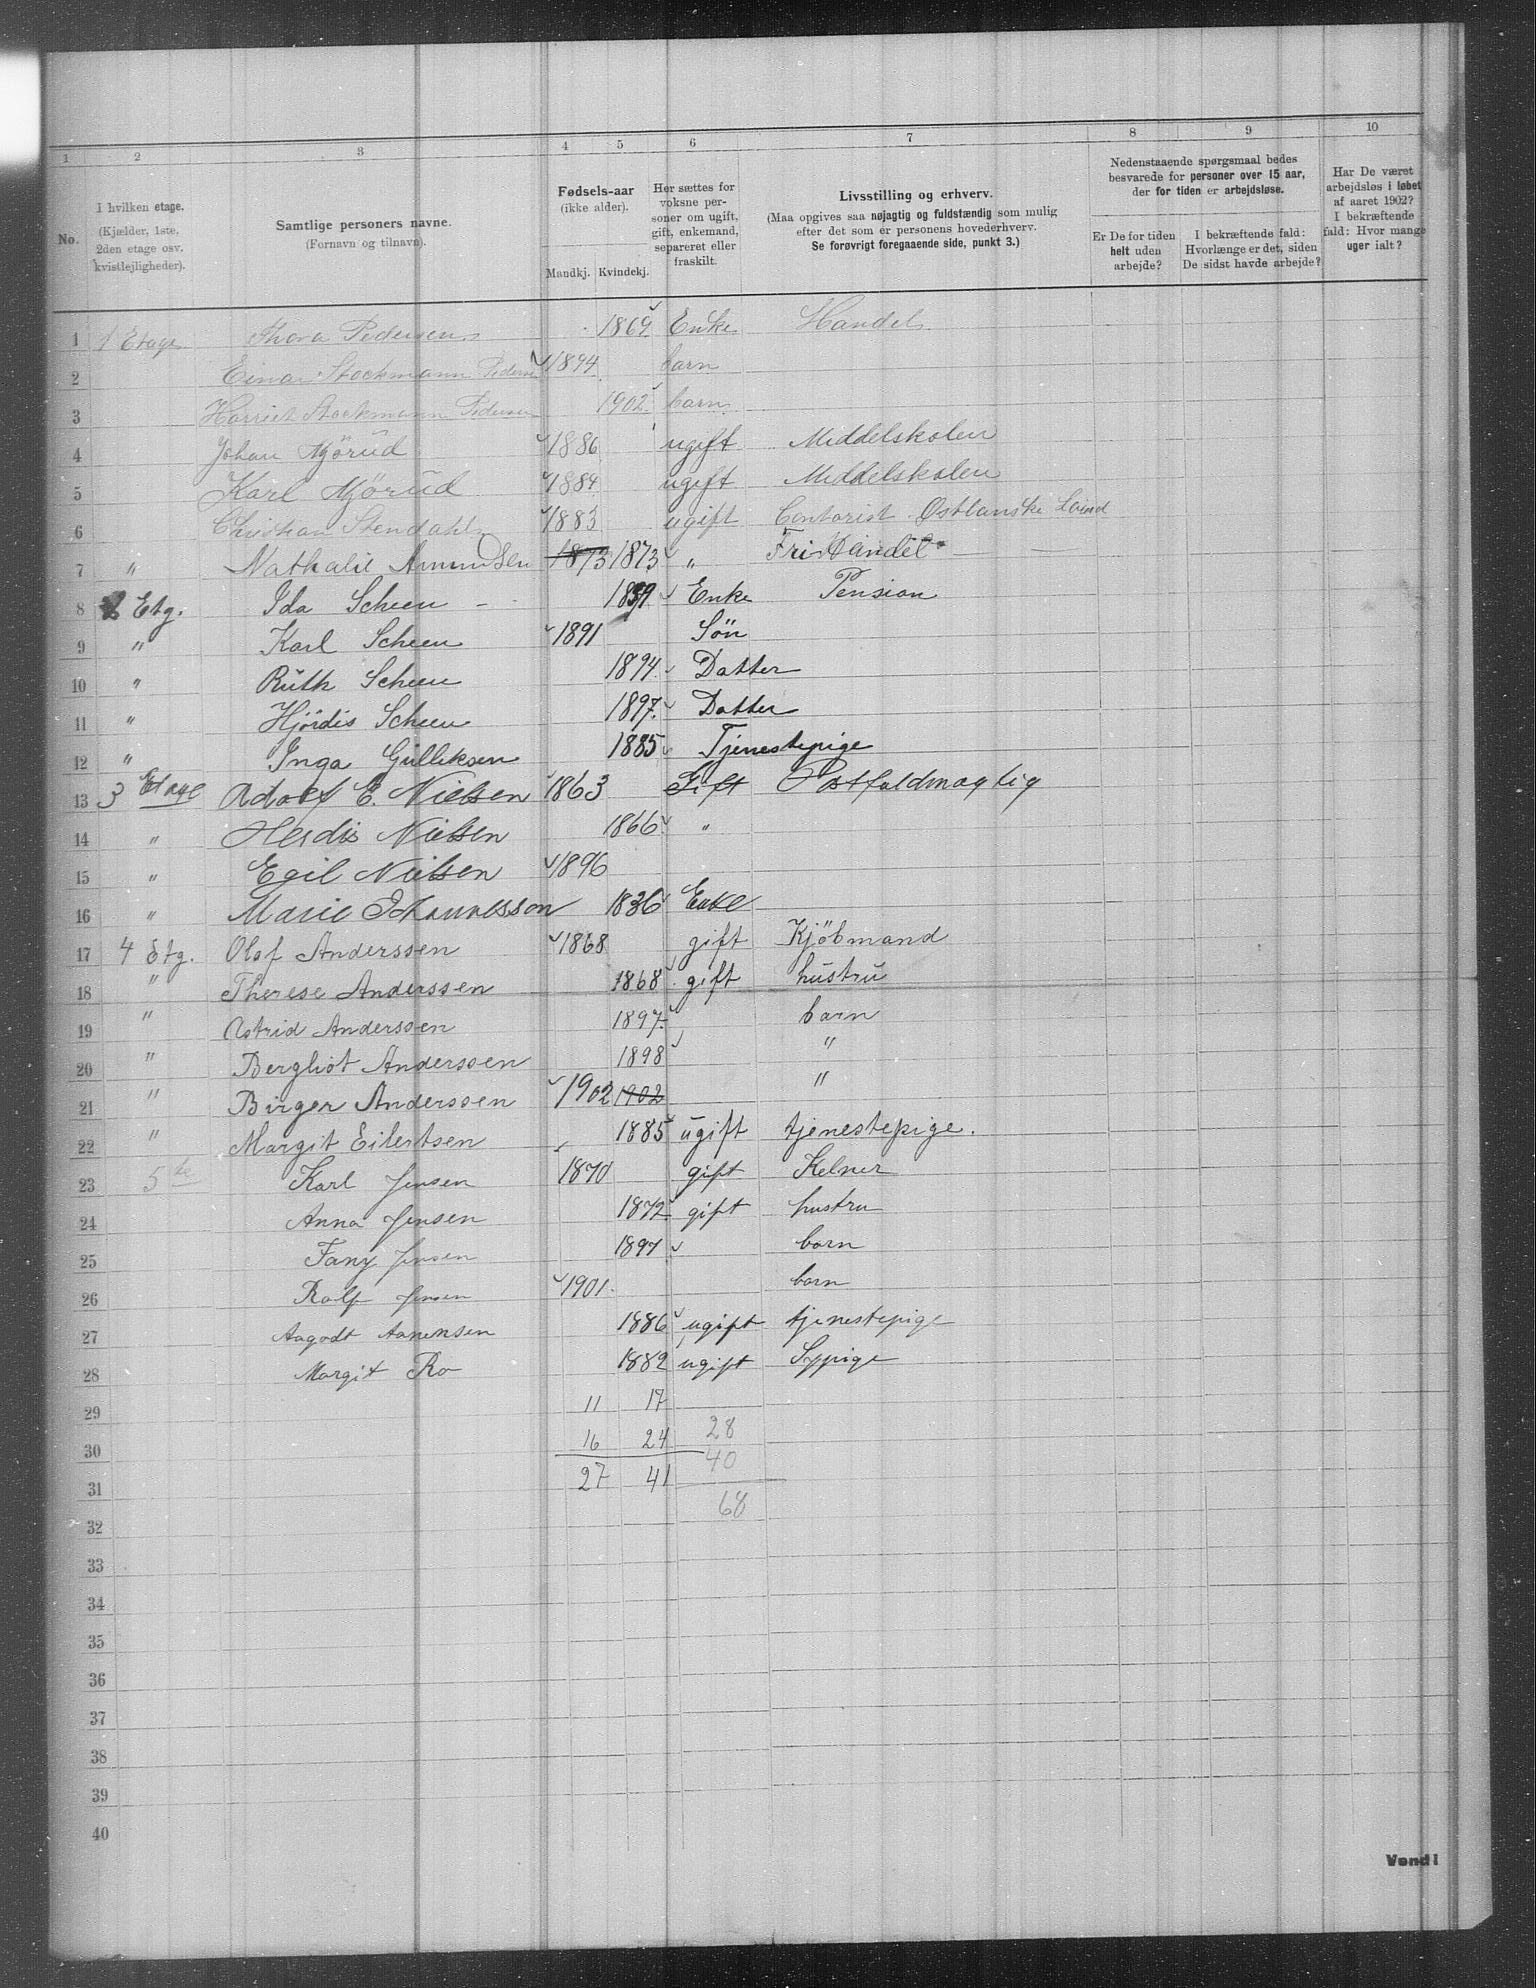 1 2 3 4 5 6 7 8 9 10
No.
I hvilken etage. (Kjælder, 1ste, 2den etage osv. kvistlejligheder).
Samtlige personers navne.
(Fornavn og tilnavn).
Fødsels-aar
(ikke alder).
Mandkj. Kvindekj.
Her sættes for voksne personer om ugift, gift, enkemand, separeret eller fraskilt.
Livsstilling og erhverv.
(Maa opgives saa nøjagtig og fuldstændig som mulig
efter det som er personens hovederhverv.
Se forøvrigt foregaaende side, punkt 3.)
Nedenstaaende spørgsmaal bedes
besvarede for personer over 15 aar,
der for tiden er arbejdsløse.
Er De for tiden helt uden arbejde?
I bekræftende fald: Hvorlænge er det, siden De sidst havde arbejde?
Har De været arbejdsløs i løbet af aaret 1902? I bekræftende fald: Hvor mange uger ialt?
1 1 Etage Thora Pedersen 1869 Enke Handel
2 Einar Stockmann Pedersen 1894 barn
3 Harriet Stockmann Pedersen 1902 barn
4 Johan Mjörud 1886 ugift Middelskolen
5 Karl Mjörud 1884 ugift Middelskolen
6 Christian Stendahl 1883 ugift Contorist Østlanske
7 " Nathalie Amundsen 1873 1873 " Fri Handel
8 2 Etg. Ida Scheen - 1859 Enke Pension
9 " Karl Scheen 1891 Sön
10 " Ruth Scheen 1894 Datter
11 " Hjördis Scheen 1897 Datter
12 " Inga Gulliksen 1885 Tjenestepige
13 3 Etage Adolf E. Nielsen 1863 Gift Postfuldmægtig
14 " Herdis Nielsen 1866 "
15 " Egil Nielsen 1896
16 " Marie Johannesson 1836 Enke
17 4 Etg. Olaf Anderssen 1868 gift Kjöbmand
18 " Therese Anderssen 1868 gift hustru
19 " Astrid Anderssen 1897 barn
20 " Bergliot Anderssen 1898 "
21 " Birger Anderssen 1902 1902 "
22 " Margit Eilertsen 1885 ugift tjenestepige.
23 5te Karl Jensen 1870 gift Kelner
24 Anna Jensen 1872 gift hustru
25 Fany Jensen 1897 barn
26 Ralf Jensen 1901 barn
27 Aagodt Aanensen 1886 ugift tjenestepige
28 Margit Ro 1882 ugift Sypige
29 11 17
30 16 24 28
31 27 41 40
32 68
33
34
35
36
37
38
39
40
Vend!